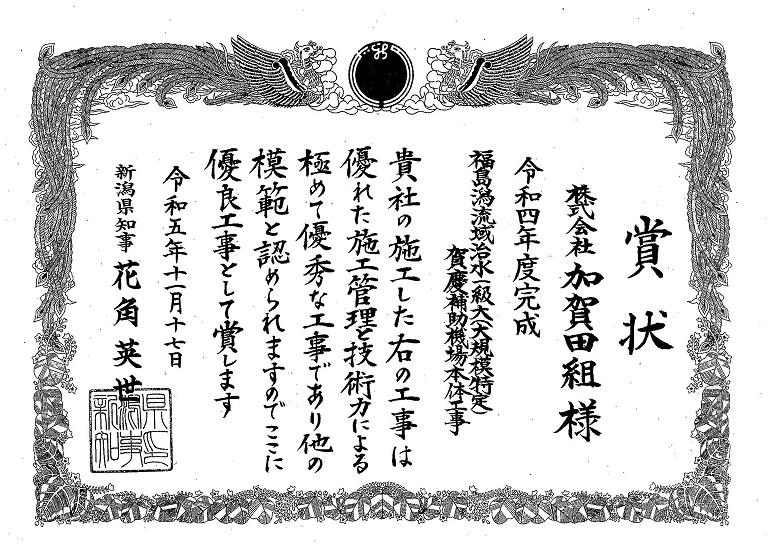 賞状
株式会社 加賀田組 様
令和四年度完成
福島潟流域治水一級大(大規模特定)
賀慶補助機場本体工事
貴社の施工した右の工事は
優れた施工管理と技術力による
極めて優秀な工事であり他の
模範と認められますのでここに
優良工事として賞します
令和五年十一月十七日
新潟県知事 花角英世
新潟県知事之印